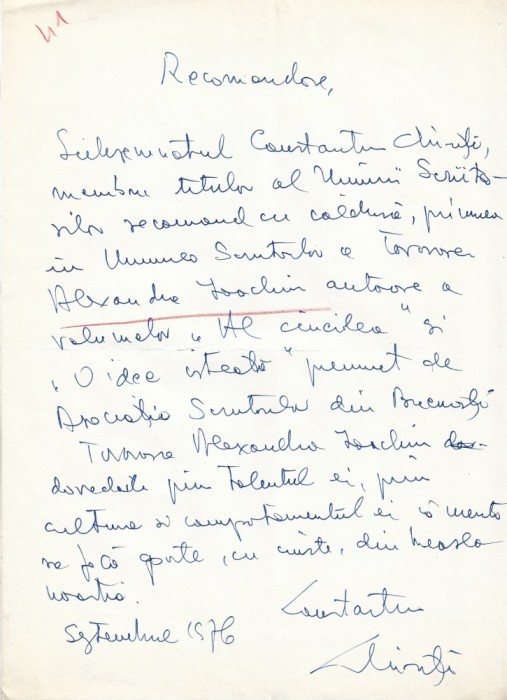 41
Recomandare,
Subsemnatul Constantin Chiriță,
membru titular al Uniunii Scriito-
rilor recomand cu căldură, primirea
în Uniunea Scriitorilor a Tovarășei
Alexandra Ioachim autoare a
volumelor „Al cincilea" și
„O idee isteață" premiat de
Asociația Scriitorilor din București
Tovarășa Alexandra Ioachim
dovedește prin talentul ei, prin
cultura și comportamentul ei că merită
să facă parte, cu cinste, din breasla
noastră.
Septembrie 1976
Constantin
Chiriță